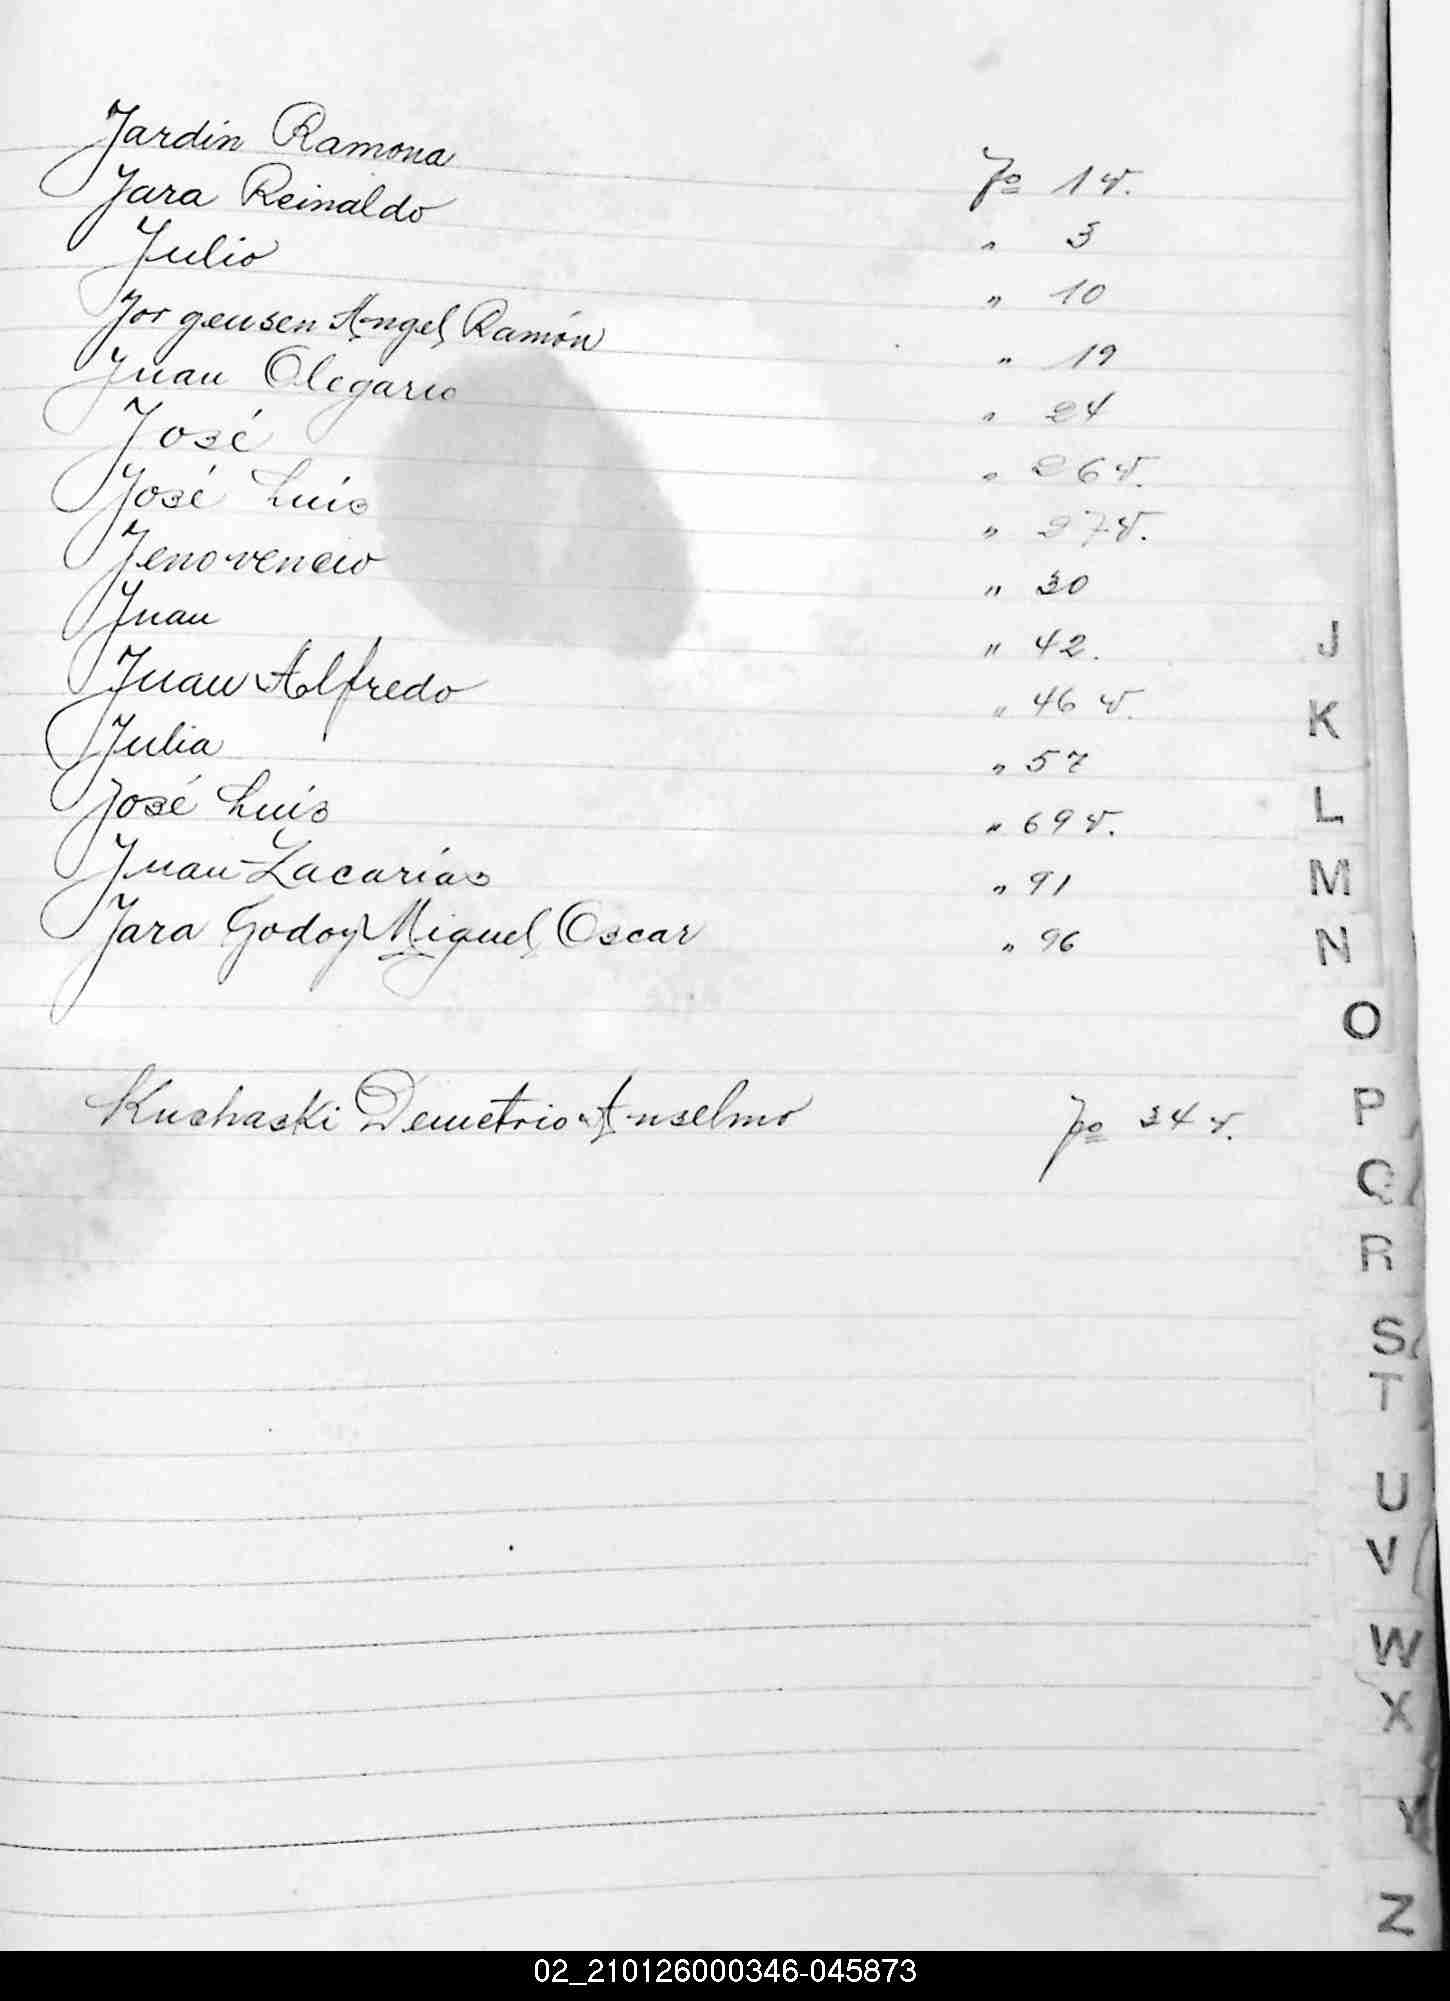 Jardin Ramona fº 1 v.
Jara Reinaldo " 3
Julio " 10
Jorgensen Angel Ramón " 19
Juan Olegario " 24
José " 26 v.
José Luis " 27 v.
Jenovencio " 30
Juan " 42.
Juan Alfredo " 46 v.
Julia " 57
José Luis " 69 v.
Juan Zacarias " 91
Jara Godoy Miguel Oscar " 96
Kushaski Demetrio Anselmo fº 34 v.
J
K
L
M
N
O
P
Q
R
S
T
U
V
W
X
Y
Z
02_210126000346-045873